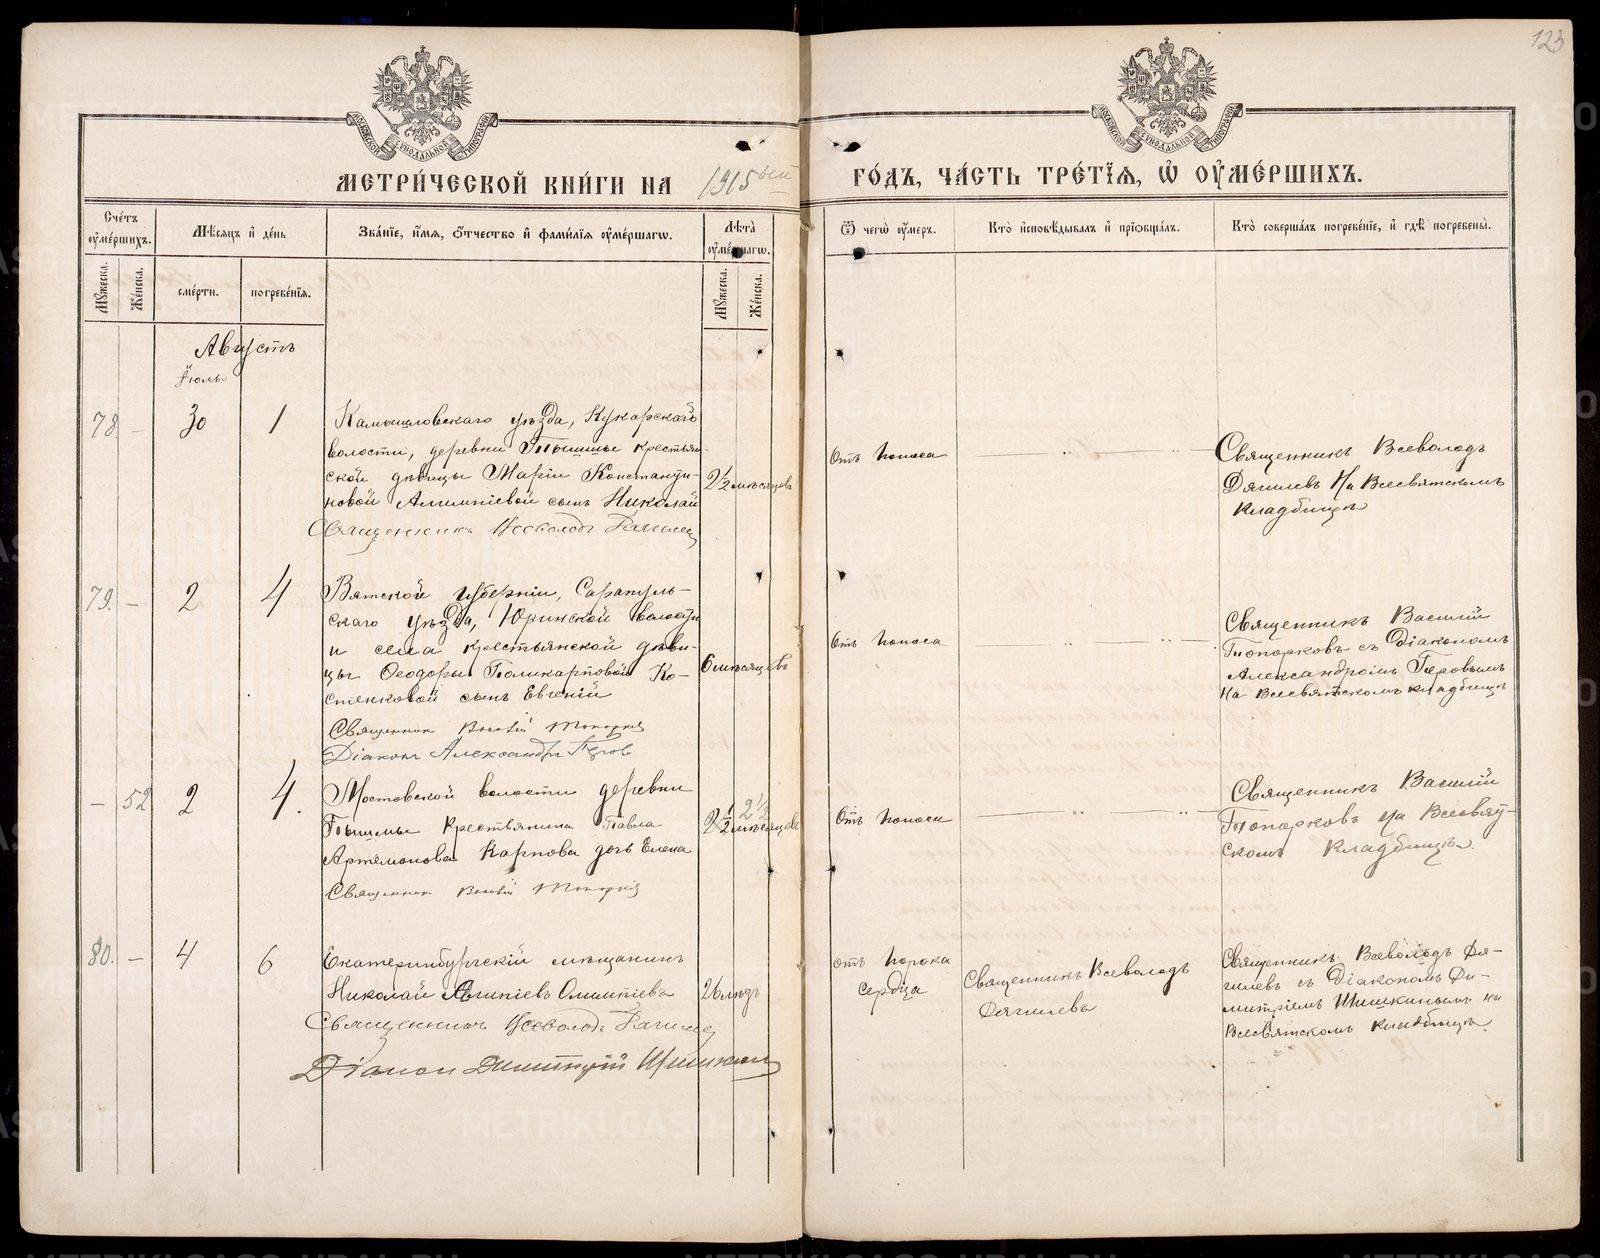 123
МОСКОВСКОЙ СѴНОДАЛЬНОЙ ТИПОГРАФІИ
МОСКОВСКОЙ СѴНОДАЛЬНОЙ ТИПОГРАФІИ
МЕТРИ́ЧЕСКОЙ КНИ́ГИ НА 1915ый ГО́ДЪ, ЧА́СТЬ ТРЕ́ТІЯ, Ѡ҆ ОУ҆МЕ́РШИХЪ.
Сче́тъ оу҆ме́ршихъ.
Мѣ́сяцъ и҆ де́нь
Зва́нїе, и҆́мя, ѻ҆́тчество и҆ фами́лїя оу҆ме́ршагѡ.
Лѣта̀ оу҆ме́ршагѡ.
Ѿ чегѡ̀ оу҆́меръ.
Кто̀ и҆сповѣ́дывалъ и҆ прїѡбща́лъ.
Кто̀ соверша́лъ погребе́нїе, и҆ гдѣ̀ погребены̀.
Мꙋ́жеска.
Же́нска.
сме́рти.
погребе́нїя.
Мꙋ́жеска.
Же́нска.
Августъ
Іюль
78. - 30 1
Камышловскаго уѣзда, Кукарской
волости, деревни Пышмы крестьян-
ской дѣвицы Маріи Константи-
новой Алимпіевой сынъ Николай
Священникъ Всеволодъ Дягилевъ
2½ мѣсяцевъ
Отъ поноса
Священникъ Всеволодъ
Дягилевъ На Всесвятскомъ
кладбищѣ
79. - 2 4
Вятской губерніи, Сарапуль-
скаго уѣзда, Юринской волости
и села крестьянской дѣви-
цы Ѳеодоры Поликарповой Ко-
стенковой сынъ Евгеній
Священник Василій Топорков
Діаконъ Александръ Перов
6 мѣсяцевъ
Отъ поноса
Священникъ Василій
Топорковъ съ Діакономъ
Александромъ Перовымъ
На Всесвятскомъ кладбищѣ
- 52 2 4.
Мостовской волости деревни
Пышмы Крестьянина Павла
Артемонова Карпова дочь Елена
Священник Василій Топорков
2½ мѣсяцевъ 2½
Отъ поноса
Священникъ Василій
Топорковъ На Всесвят-
скомъ кладбищѣ.
80. - 4 6
Екатеринбургскій мѣщанинъ
Николай Олимпіевъ
Священникъ Всеволодъ Дягилев
Діакон Димитрій Шишкин
26 лѣтъ
отъ порока
сердца
Священникъ Всеволодъ
Дягилевъ
Священникъ Всеволодъ Дя-
гилевъ съ Діакономъ Ди-
митріемъ Шишкинымъ на
Всесвятскомъ кладбищѣ.
METRIKI.GASO-URAL.RU